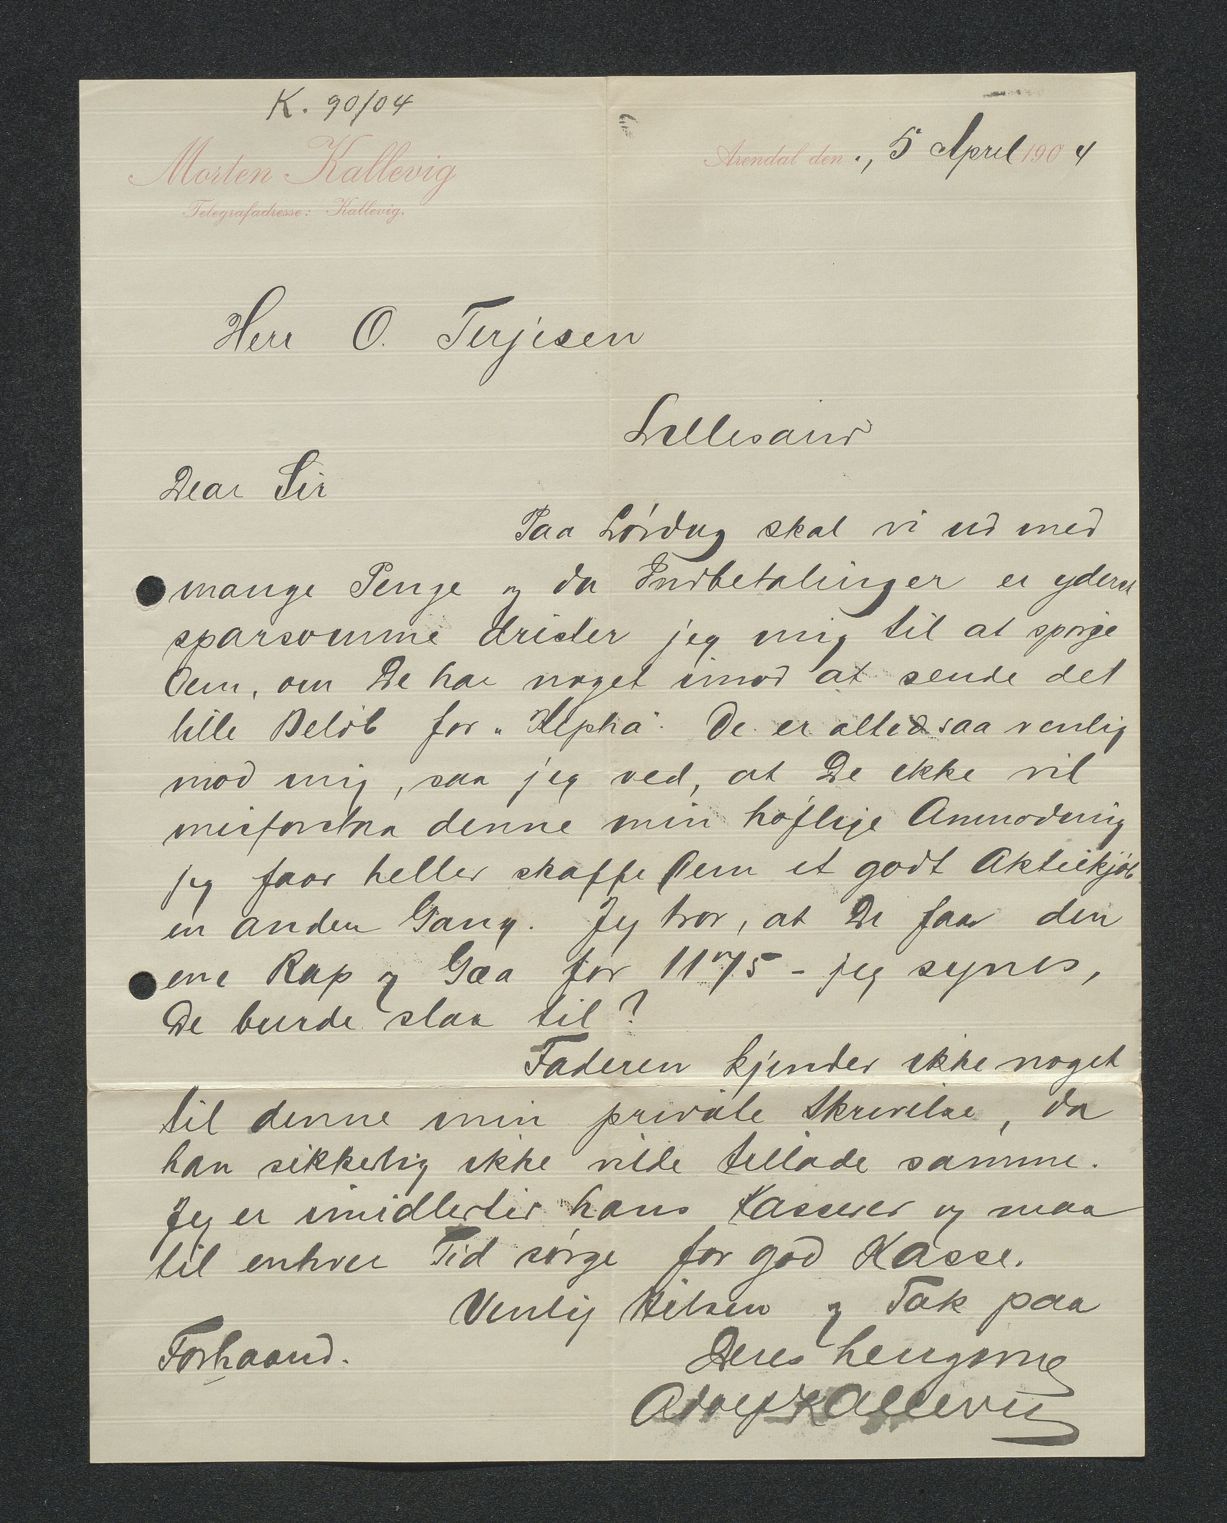 K. 90/04
Morten Kallevig
Telegrafadresse: Kallevig.
Arendal den 5 April 1904
Herr O. Terjesen
Lillesand
Dear Sir
Paa Lördag skal vi ud med
mange Penge og da Indbetalinger er yderst
sparsomme drister jeg mig til at spørge
Dem, om De har noget imod at sende det
lille Beløb for "Alpha". De er altid saa venlig
mod mig, saa jeg ved, at De ikke vil
misforstaa denne min høflige Anmodning
jeg faar heller skaffe Dem et godt Aktiekjøb
en anden Gang. Jeg tror, at De faar den
ene Rap og Gæa for 1175 - jeg synes,
De burde slaa til?
Faderen kjender ikke noget
til denne min private Skrivelse, da
han sikkerlig ikke vilde tillade samme.
Jeg er imidlertid hans Kasserer og maa
til enhver Tid sørge for god Kasse.
Venlig Hilsen og Tak paa
Forhaand.
Deres hengivne
Adolf Kallevig